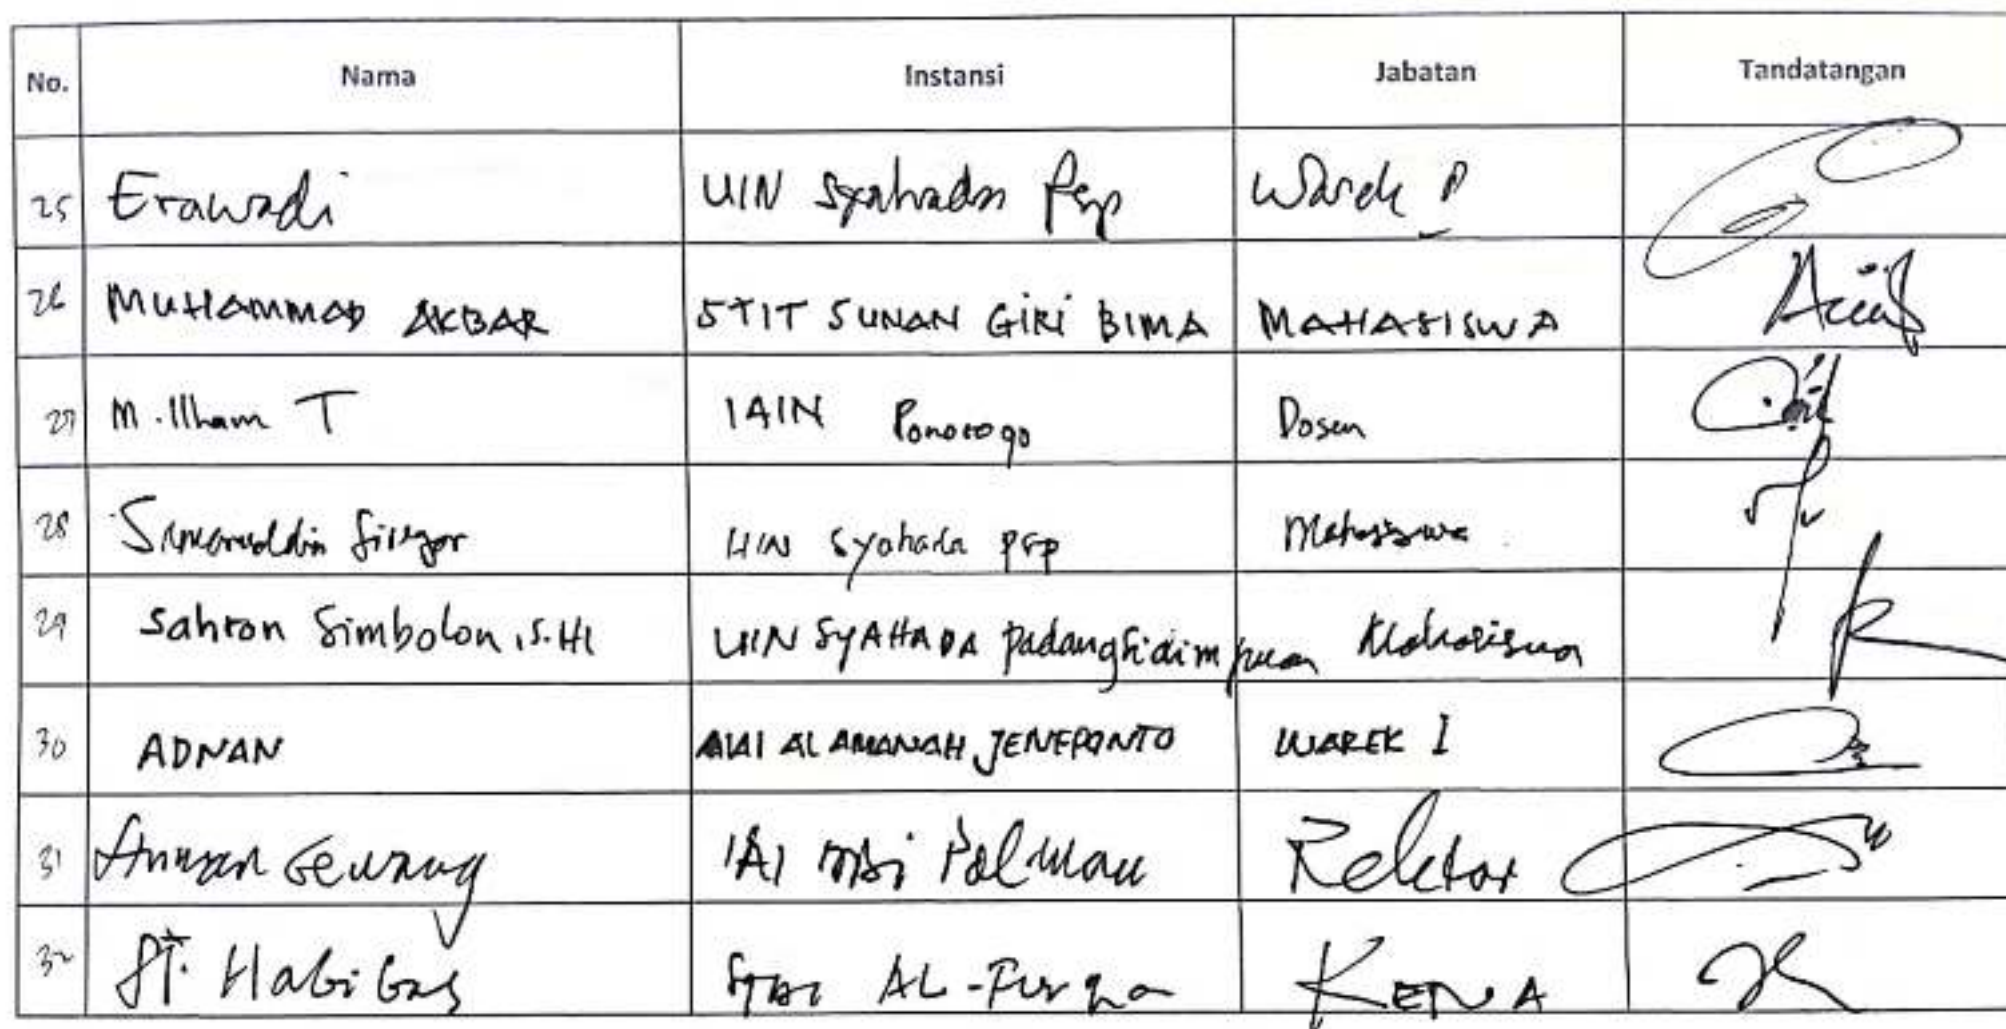 No. Nama Instansi Jabatan Tandatangan
25 Erawadi UIN Syahada Psp Warek
26 MUHAMMAD AKBAR STIT SUNAN GIRI BIMA MAHASISWA
27 M. Ilham T IAIN Ponorogo Dosen
28 Siregar UIN Syahada PSP Mahasiswa
29 Sahron Simbolon, S.HI UIN SYAHADA Padangsidimpuan Mahasiswa
30 ADNAN AL AMANAH JENEPONTO WAREK I
31 IAI Rektor
32 ST. Habibah AL-Furqan